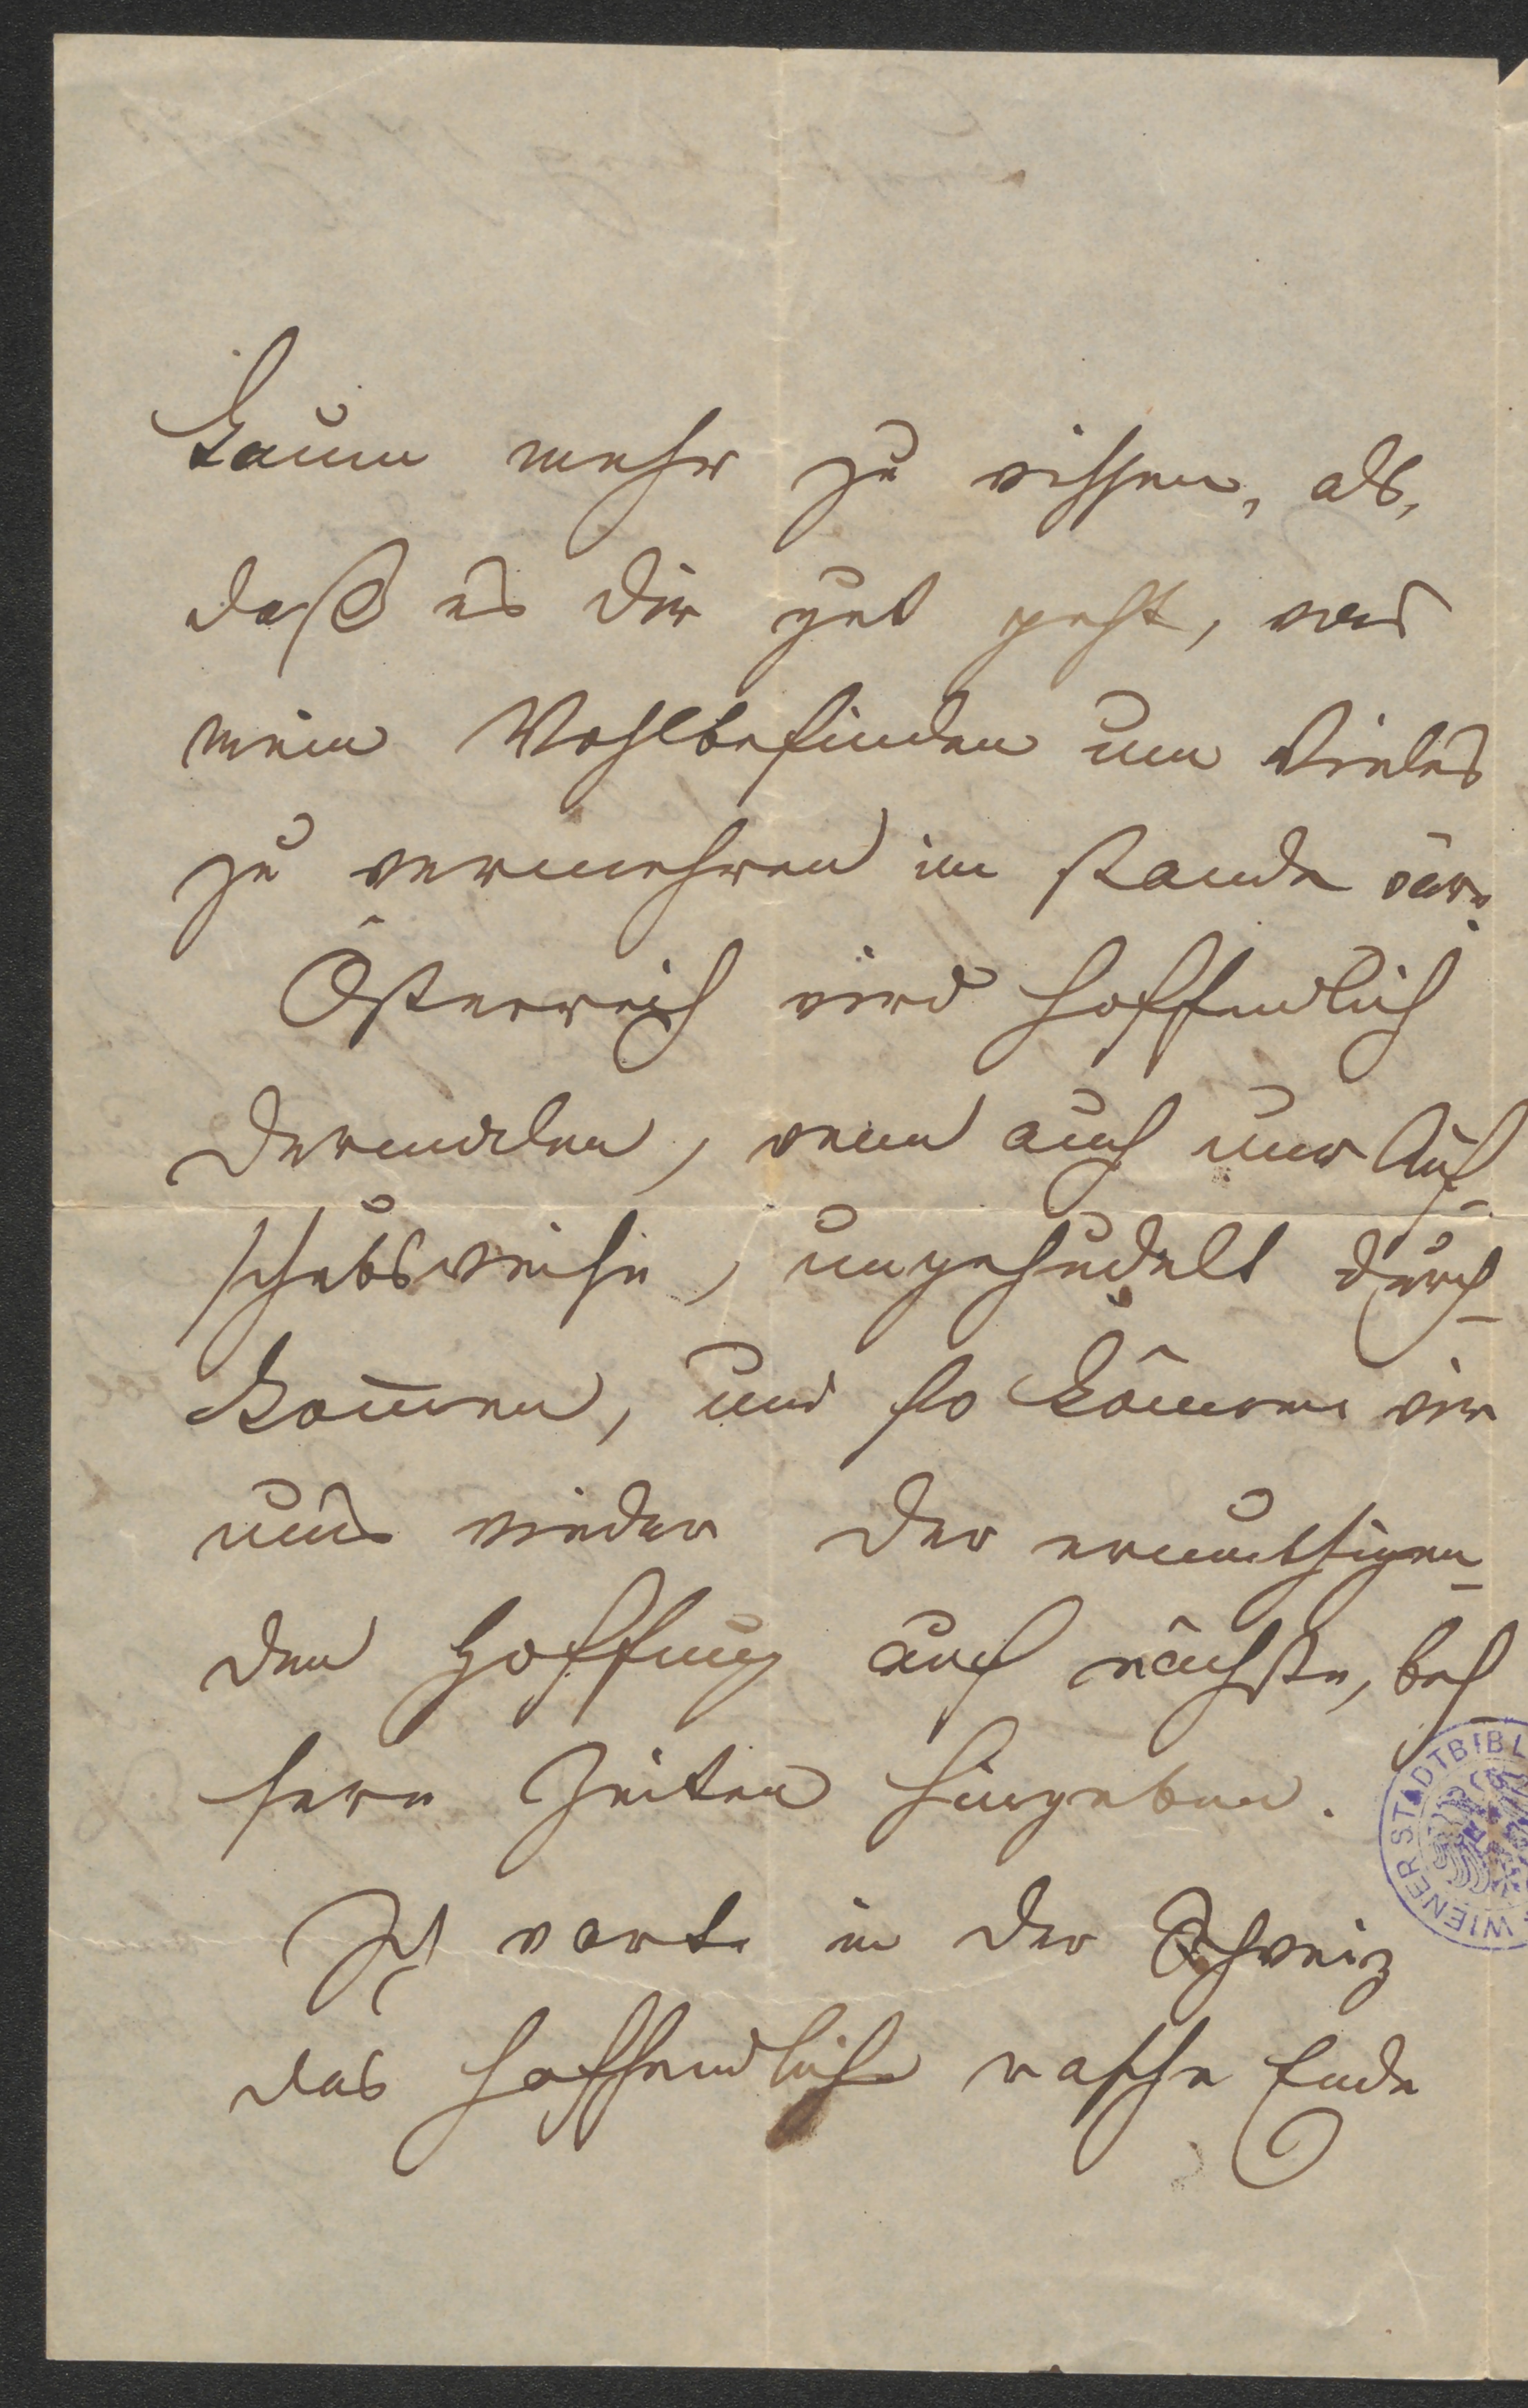 kaum mehr zu wissen, als,
daß es Dir gut geht, was
mein Wohlbefinden um Vieles
zu vermehren im stande wäre.
Österreich wird hoffendlich
dermalen, wenn auch nur Auf-
schubsweise, ungehudelt durch-
kom̄en, und so können wir
uns wieder der ermuthigen-
den Hoffnung auf nächste, bes
sere Zeiten hingeben.
Ich warte in der Schweiz
das hoffendliche rasche Ende
WIENER STADTBIBL